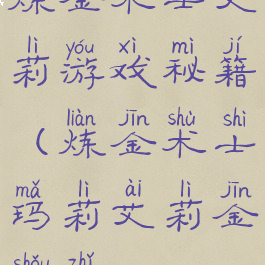 lì yóu xì mì jí
莉游戏秘籍
liàn jīn shù shì
(炼金术士
mǎ lì ài lì jīn
玛莉艾莉金
shǒu zhǐ